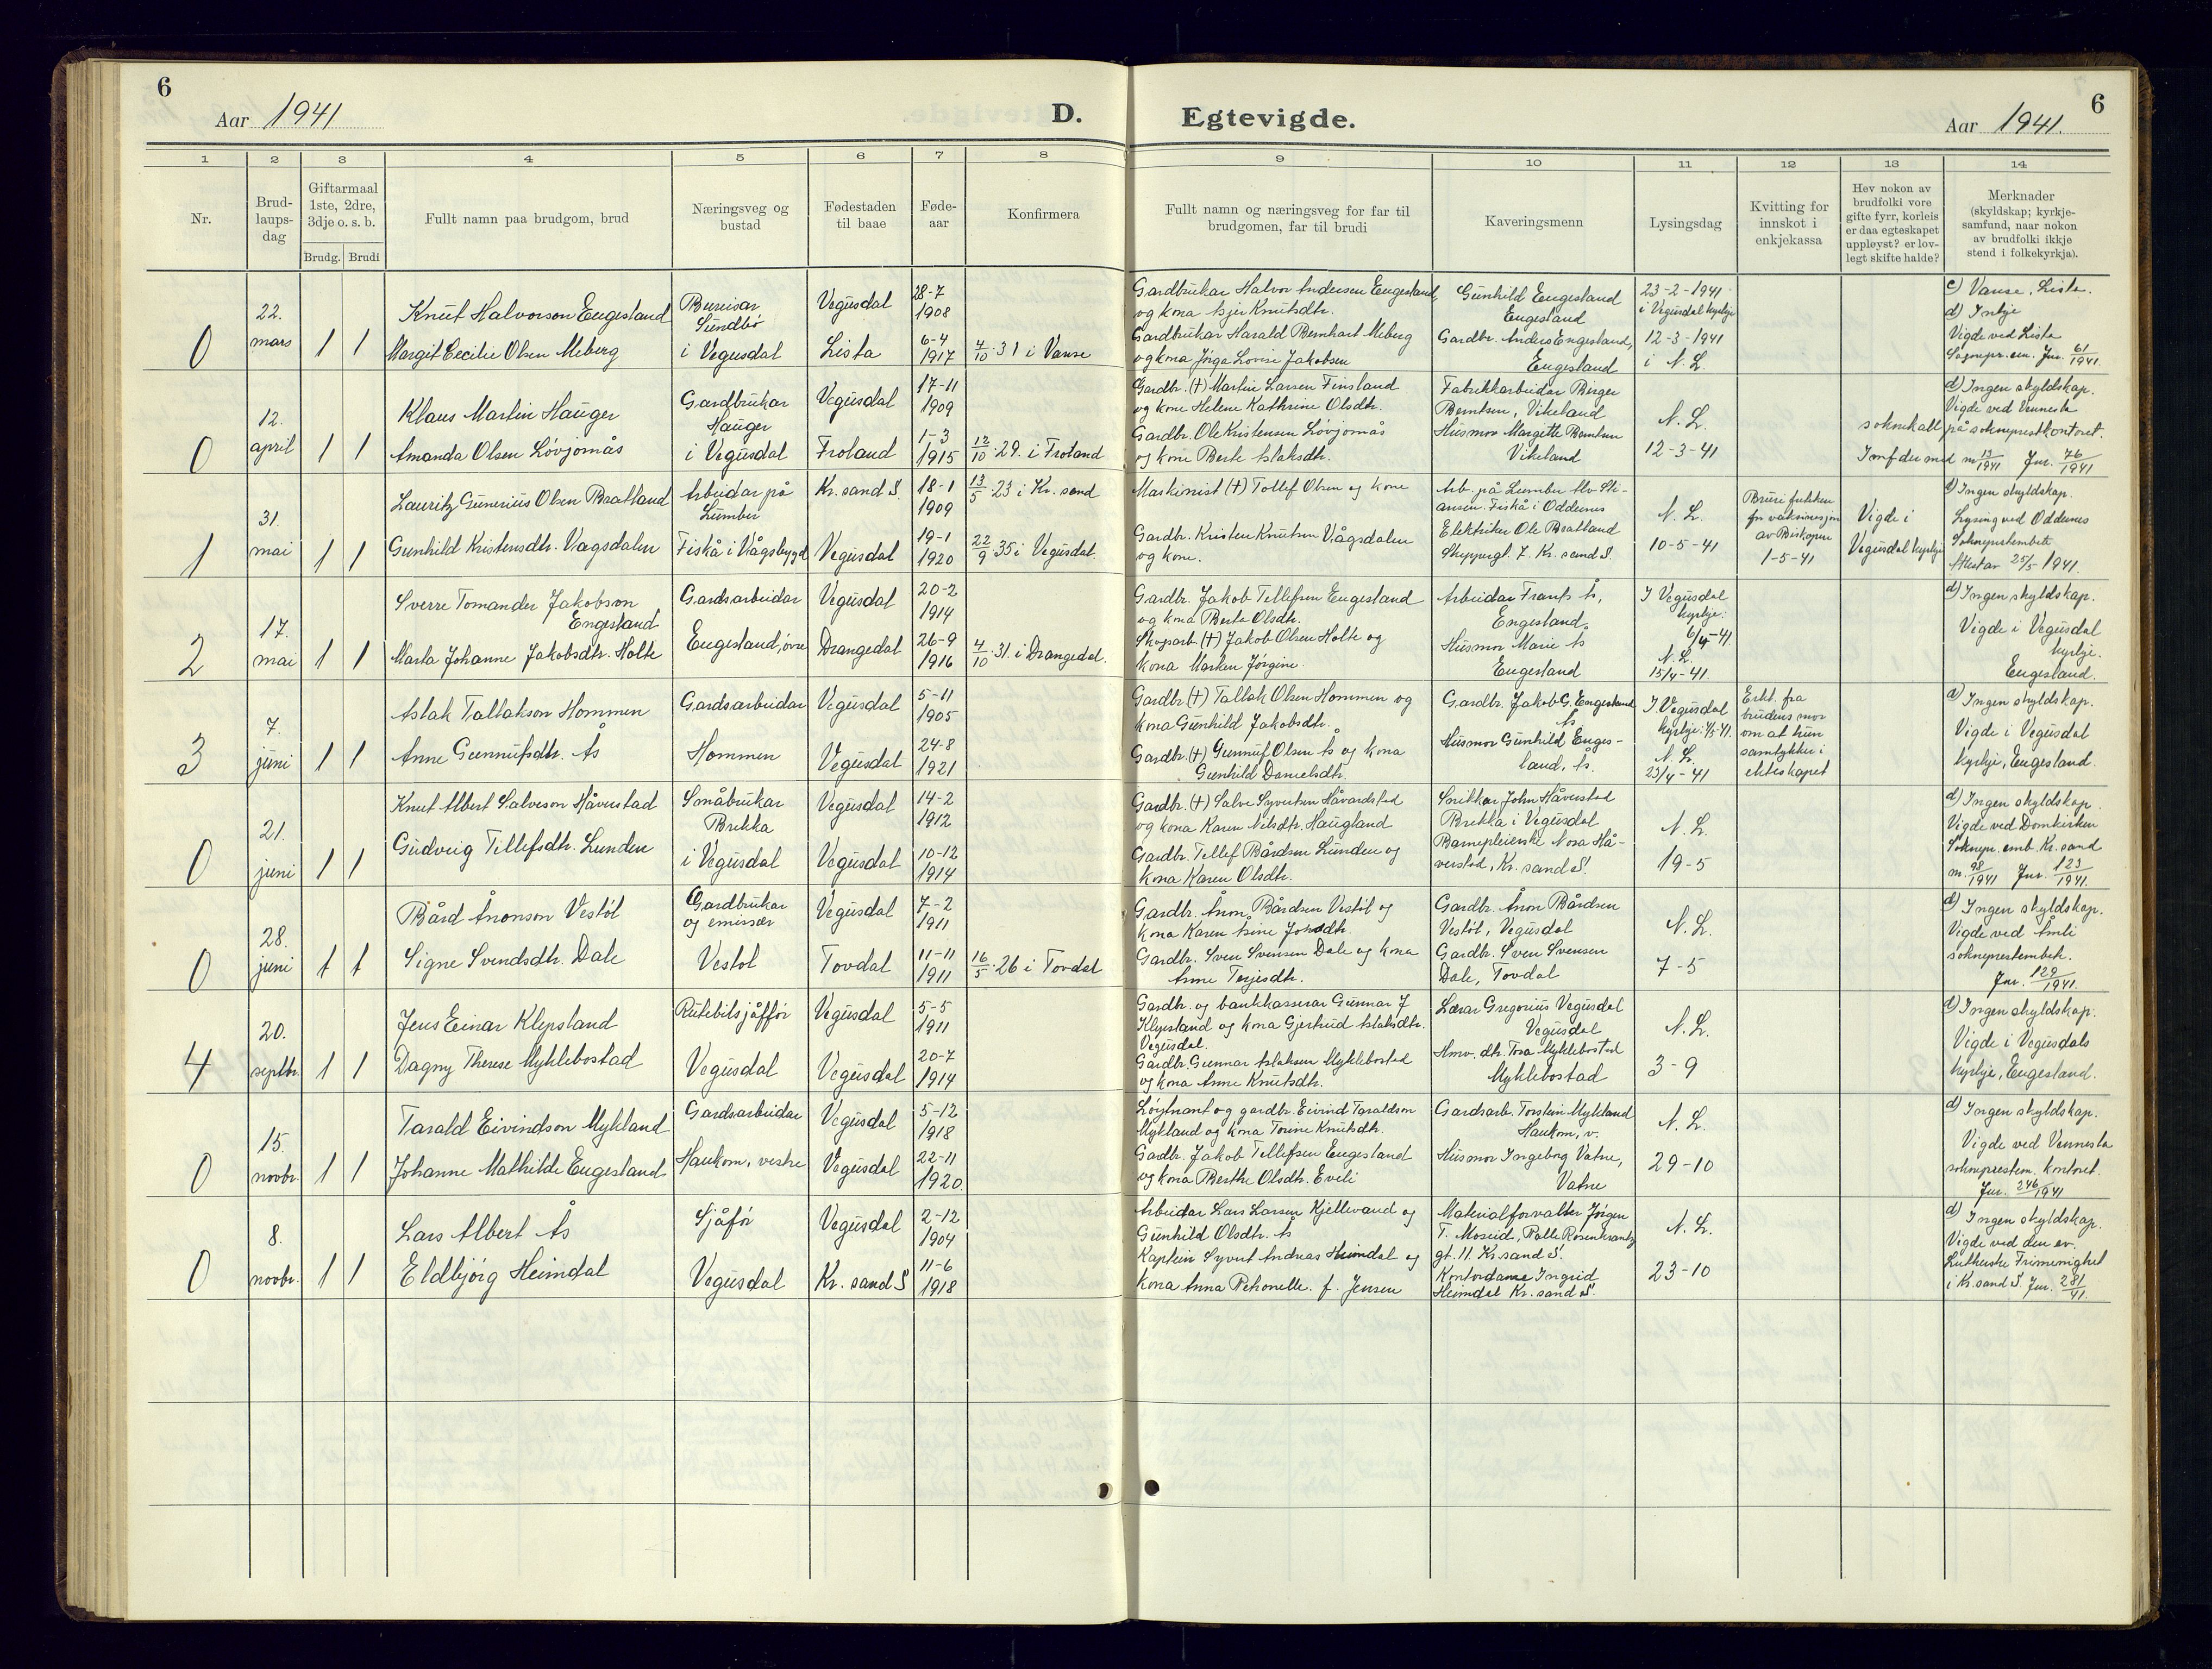 6
Aar 1941
D.
Egtevigde.
Aar 1941.
6
1 2 3 4 5 6 7 8 9 10 11 12 13 14
Nr.
Brud-
laups-
dag
Giftarmaal
1ste, 2dre,
3dje o. s. b.
Brudg. Brudi
Fullt namn paa brudgom, brud
Næringsveg og
bustad
Fødestaden
til baae
Føde-
aar
Konfirmera
Fullt namn og næringsveg for far til
brudgomen, far til brudi
Kaveringsmenn
Lysingsdag
Kvitting for
innskot i
enkjekassa
Hev nokon av
brudfolki vore
gifte fyrr, korleis
er daa egteskapet
uppløyst? er lov-
legt skifte halde?
Merknader
(skyldskap; kyrkje-
samfund, naar nokon
av brudfolki ikkje
stend i folkekyrkja).
0
22.
mars
1 1
Knut Halvorson Engesland
Margit Cecilie Olsen Meberg
Bureisar
Sundbø
i Vegusdal
Vegusdal
Lista
28-7
1908
6-4
1917
4/10-31 i Vanse
Gardbrukar Halvor Andersen Engesland,
og kona Asjer Knutsdtr.
Gardbrukar Harald Bernhart Meberg
og kona Jørga Lovise Jakobsen
Gunhild Engesland
Engesland
Gardbr. Anders Engesland,
Engesland
23-2-1941
i Vegusdal kyrkje
12-3-1941
i N. L.
c) Vanse, Lista.
d) Inkje
Vigde ved Lista
Sogn.pr.em. Jnr. 61/1941
0
12.
april
1 1
Klaus Martin Hauger
Amanda Olsen Løvjomås
Gardbrukar
Hauger
i Vegusdal
Vegusdal
Froland
17-11
1909
1-3
1915
12/10-29. i Froland
Gardbr. (†) Martin Larsen Finsland
og kone Helene Kathrine Olsdtr.
Gardbr. Ole Kristensen Løvjomås
og kone Berte Aslaksdtr.
Fabrikkarbeidar Birger
Berntsen, Vikeland
Husmor Margitte Berntsen
Vikeland
N. L.
12-3-41
d) Ingen skyldskap.
Vigde ved Vennesla
soknekall på sokneprestkontoret.
m 13/1941 Jnr. 76/1941
1
31.
mai
1 1
Lauritz Gunerius Olsen Braatland
Gunhild Kristensdtr. Vågsdalen
Arbeidar på
Lumber
Fiskå i Vågsbygd
Kr. sand S.
Vegusdal
18-1
1909
19-1
1920
13/5-23 i Kr. sand
22/9-35 i Vegusdal.
Maskinist (†) Tollef Olsen og kone
Gardbr. Kristen Knutsen Vågsdalen
og kone.
Arb. på Lumber Alv Sti-
ansen. Fiskå i Oddernes
Elektriker Ole Braatland
Skippergt. 7. Kr. sand S.
N. L.
10-5-41
Bruri friteken
for vaksinasjon
av Biskopen
1-5-41
Vigde i
Vegusdal kyrkje
d) Ingen skyldskap.
Lysing ved Oddernes
Sokneprestembete
Attestar 25/5 1941.
2
17.
mai
1 1
Sverre Tomander Jakobson
Engesland
Marta Johanne Jakobsdtr. Holte
Gardsarbeidar
Engesland, øvre
Vegusdal
Drangedal
20-2
1914
26-9
1916
4/10-31. i Drangedal.
Gardbr. Jakob Tellefsen Engesland
og kona Berte Olsdtr.
Skogarb (†) Jakob Olsen Holte og
kona Marken Jørgine.
Arbeidar Frants Ås,
Engesland.
Husmor Marie Ås
Engesland
I Vegusdal
kyrkje:
6/4-41
N. L.
15/4-41.
d) Ingen skyldskap.
Vigde i Vegusdal
kyrkje.
Engesland.
3
7.
juni
1 1
Aslak Tallakson Hommen
Anne Gunnufsdtr. Ås
Gardsarbeidar
Hommen
Vegusdal
Vegusdal
5-11
1905
24-8
1921
Gardbr. (†) Tallak Olsen Hommen og
kona Gunhild Jakobsdtr.
Gardbr. (†) Gunnuf Olsen Ås og kona
Gunhild Danielsdtr.
Gardbr. Jakob G. Engesland
Ås
Husmor Gunhild Enges-
land, Ås.
I Vegusdal
kyrkje: 4/5-41.
N. L.
23/4-41
Erkl. fra
brudens mor
om at hun
samtykker i
ekteskapet
d) Ingen skyldskap.
Vigde i Vegusdal
kyrkje, Engesland.
0
21.
juni
1 1
Knut Albert Salveson Håverstad
Gudveig Tellefsdtr. Lunden
Småbrukar
Brekka
i Vegusdal
Vegusdal
Vegusdal
14-2
1912
10-12
1914
Gardbr. (†) Salve Syvertsen Håvardstad
og kona Karen Nilsdtr. Haugland
Gardbr. Tellef Bårdsen Lunden og
kona Karen Olsdtr.
Snikkar John Håverstad
Brekka i Vegusdal
Barnepleierske Nora Hå-
verstad, Kr. sand S.
N. L.
19-5
d) Ingen skyldskap.
Vigde ved Domkirken
Soknepr. emb. Kr. sand
m. 98/1941 Jnr. 123/1941.
0
28.
juni
1 1
Bård Ånonson Vestøl
Signe Svendsdtr. Dale
Gardbrukar
og emissær
Vestøl
Vegusdal
Tovdal
7-2
1911
11-11
1911
16/5-26 i Tovdal
Gardbr. Ånon Bårdsen Vestøl og
kona Karen Åsine Johsdtr.
Gardbr. Sven Svensen Dale og kona
Anne Terjesdtr.
Gardbr. Ånon Bårdsen
Vestøl, Vegusdal
Gardbr. Sven Svensen
Dale, Tovdal
N. L.
7-5
d) Ingen skyldskap.
Vigde ved Åmli
sokneprestembete.
Jnr. 129/1941.
4
20.
septbr.
1 1
Jens Einar Klepsland
Dagny Therese Myklebostad
Rutebilsjåffør
Vegusdal
Vegusdal
Vegusdal
5-5
1911
20-7
1914
Gardbr. og bankkasserar Gunnar J
Klepsland og kona Gjertrud Aslaksdtr.
Vegusdal.
Gardbr. Gunnar Aslaksen Myklebostad
og kona Anne Knutsdtr.
Lærar Gregorius Vegusdal
Vegusdal
Hmv. dtr. Tora Myklebostad
Myklebostad
N. L.
3-9
d) Ingen skyldskap.
Vigde i Vegusdals
kyrkje, Engesland.
0
15.
novbr.
1 1
Tarald Eivindson Mykland
Johanne Mathilde Engesland
Gardsarbeidar
Haukom, vestre
Vegusdal
Vegusdal
5-12
1918
22-11
1920.
Løytnant og gardbr. Eivind Taraldson
Mykland og kona Torine Knutsdtr.
Gardbr. Jakob Tellefsen Engesland
og kona Berthe Olsdtr. Eveli
Gardsarb. Torstein Mykland
Haukom, v.
Husmor Ingeborg Vatne,
Vatne
N. L.
29-10
d) Ingen skyldskap.
Vigde ved Vennesla
sokneprestem. kontoret.
Jnr. 246/1941
0
8.
novbr.
1 1
Lars Albert Ås
Eldbjørg Heimdal
Sjåfør
Vegusdal
Vegusdal
Kr. sand S
2-12
1904
11-6
1918
Arbeidar Lars Larsen Kjellevand og
Gunhild Olsdtr. Ås
Kaptein Syvert Andreas Heimdal og
kona Anna Petronelle. f. Jensen
Materialforvalter Jørgen
T. Moseid, Palle Rosenkrantz
gt. 11. Kr. sand S.
Kontordame Ingrid
Heimdal Kr. sand S.
N. L.
23-10
d) Ingen skyldskap.
Vigde ved den ev.
Lutherske Frimenighet
i Kr. sand S Jnr. 281/41.